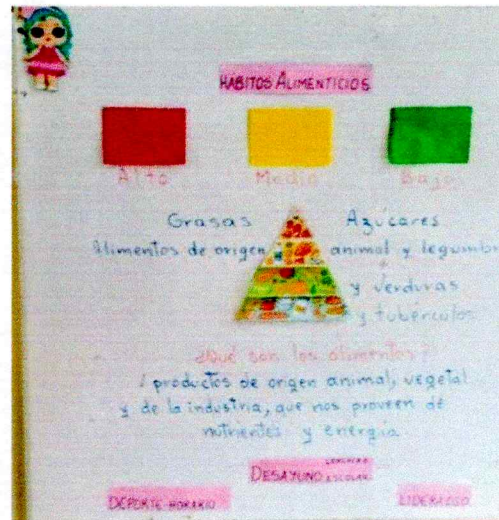 HABITOS ALIMENTICIOS
Alto Medio Bajo
Grasas Azúcares
Alimentos de origen animal y legumbr
y verduras
y tubérculos
¿Qué son los alimentos?
productos de origen animal, vegetal
y de la industria, que nos proveen de
nutrientes y energía
DESAYUNO LONCHERA ESCOLAR
DEPORTE-HORARIO LIDERAZGO